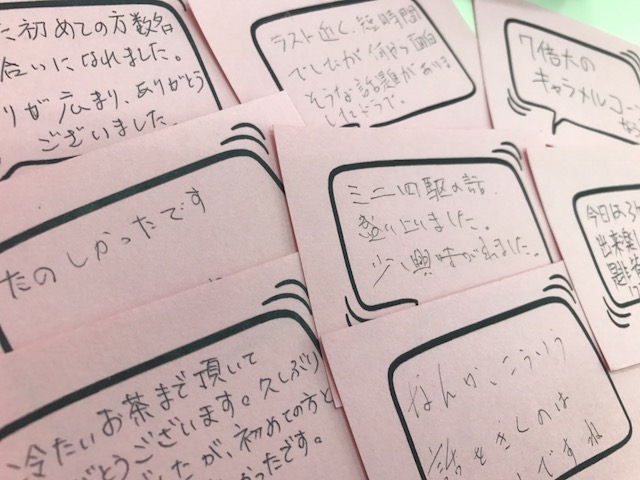 た初めての方数名
合いになれました。
りが広まり、ありがとう
ございました。
ラスト近く、短時間
でしたが
そうな話題がありま
したようで。
7倍大の
キャラメルコー
たのしかったです
ミニ四駆の話
盛り上りました。
少し興味がでれました。
今日は
出来
冷たいお茶まで頂いて
とうございます。久しぶり
たが、初めての方と
かったです。
なんか、こういう
話をきくのは
ですね